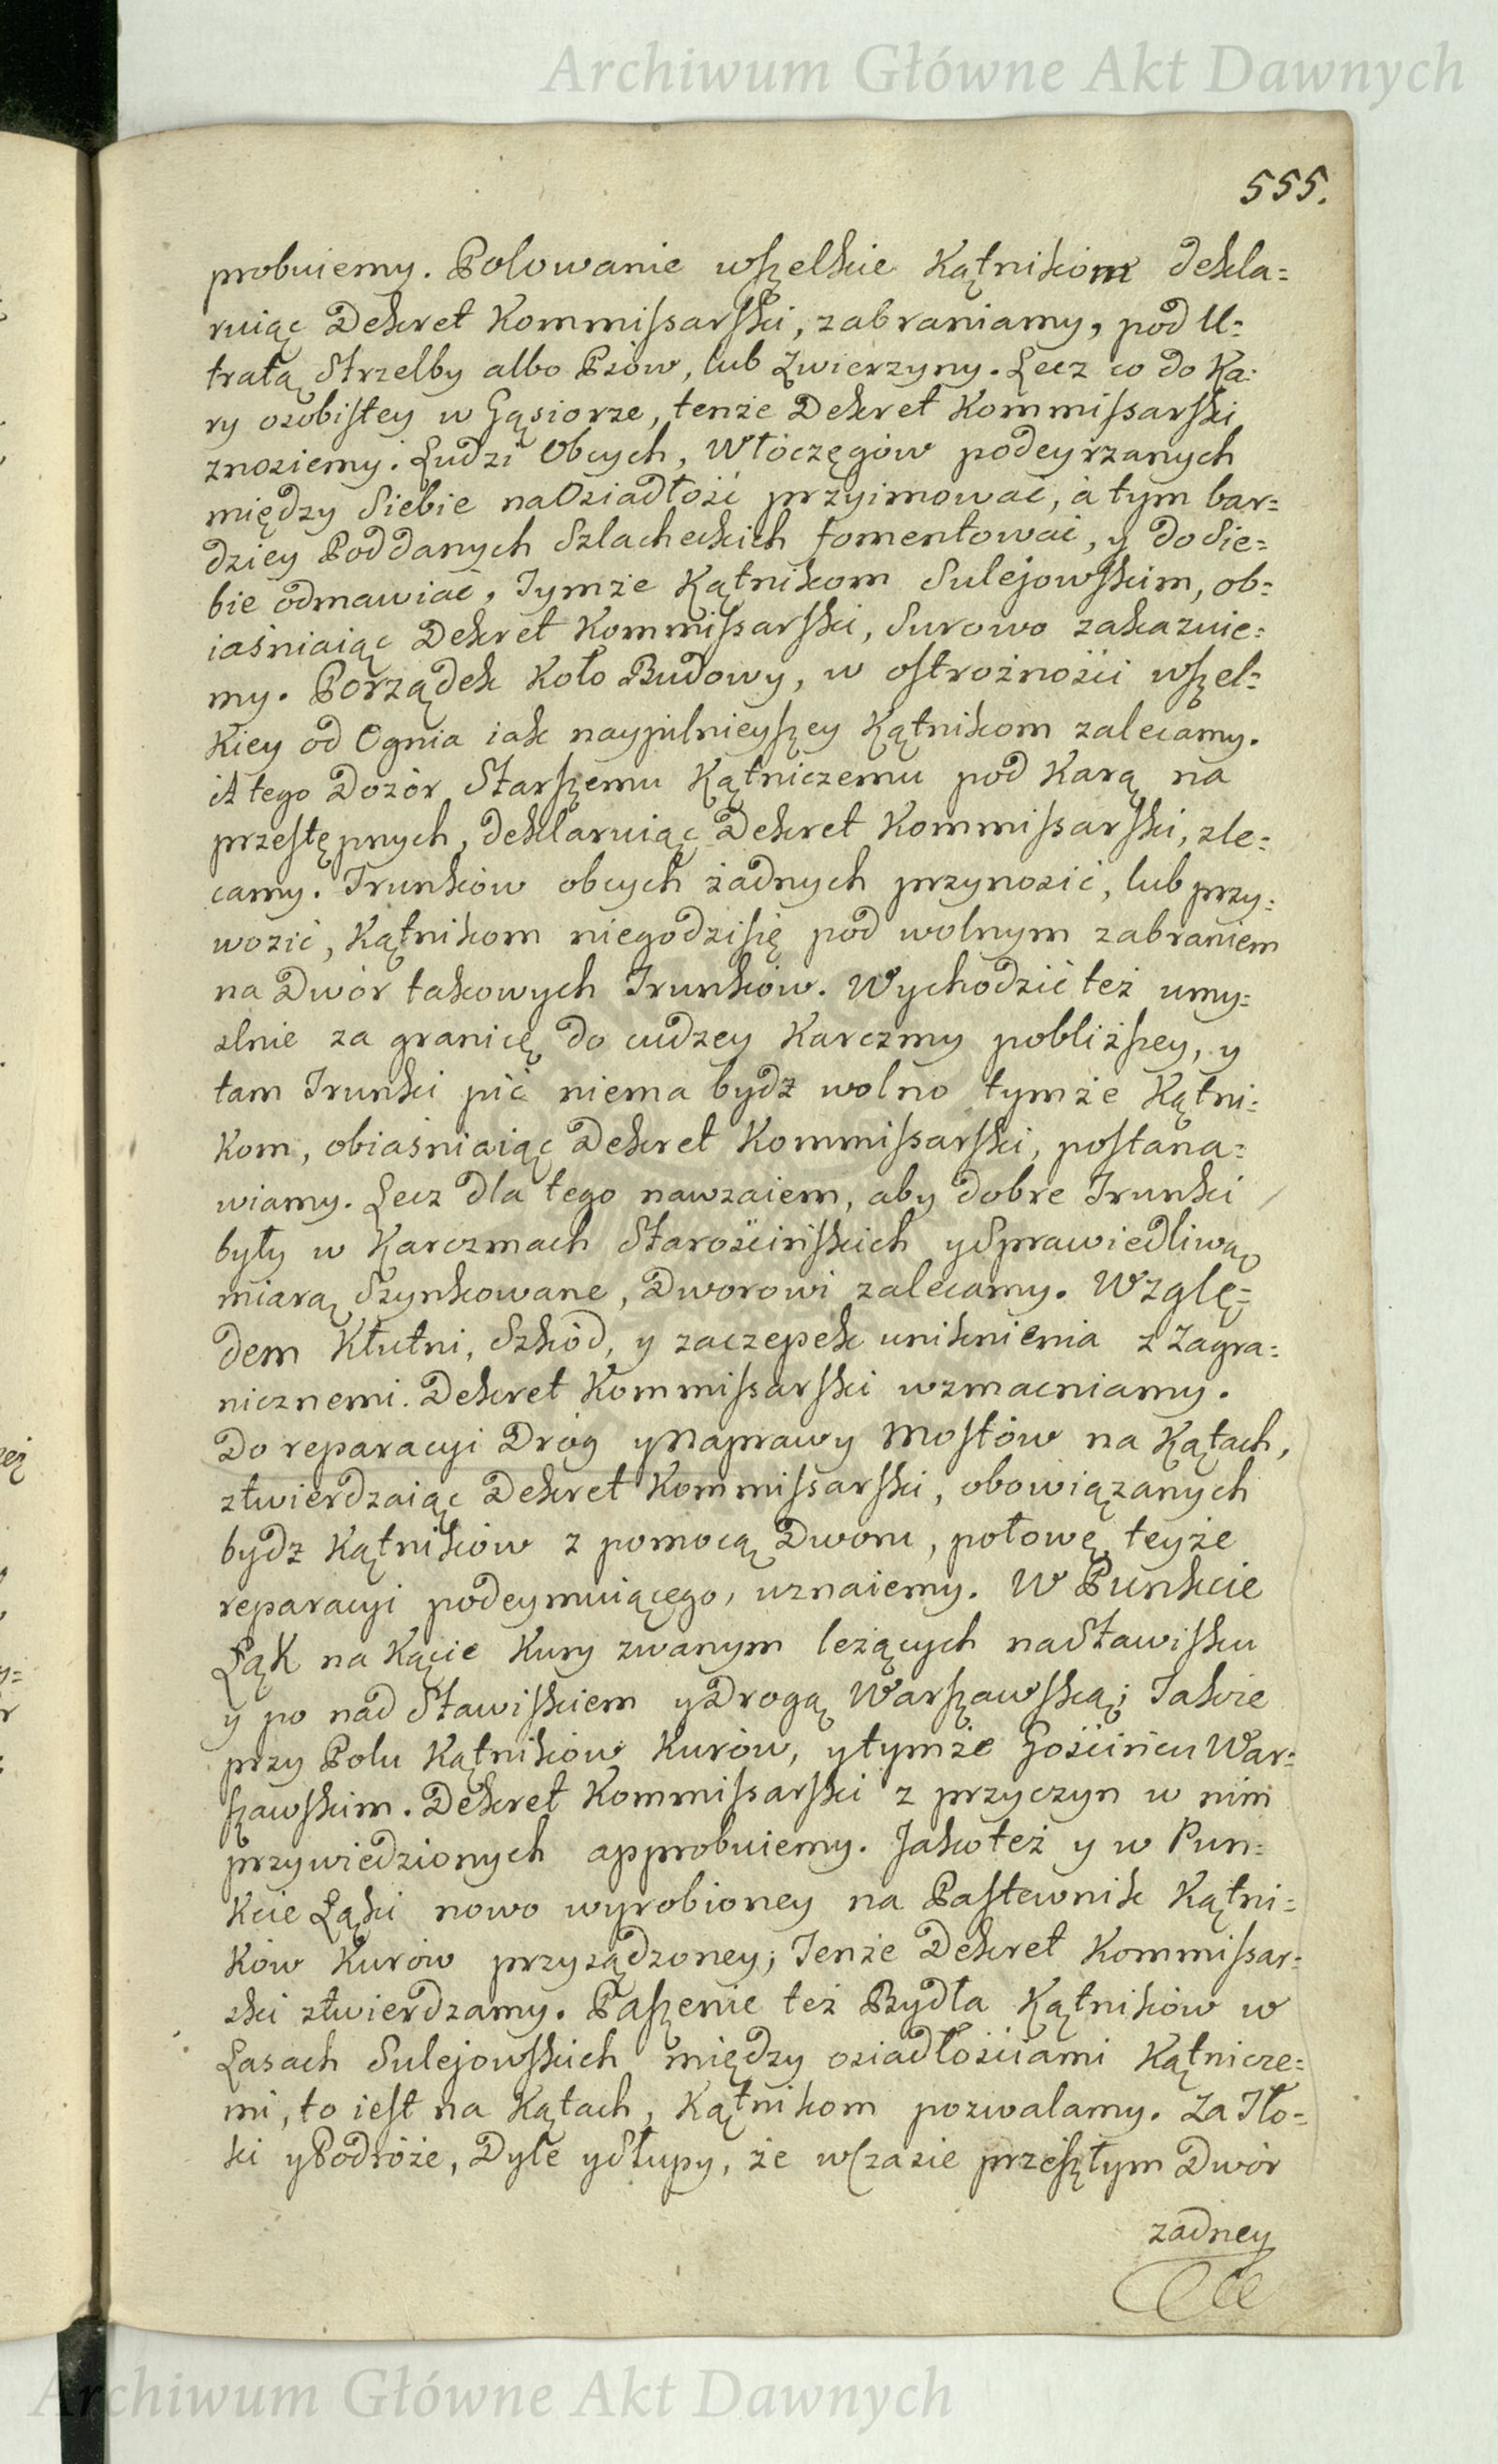 Archiwum Główne Akt Dawnych
555.
probuiemy. Polowanie wszelkie Kątnikom dekla=
ruiąc Dekret Kommissarski, zabraniamy, pod U=
tratą Strzelby albo Psów, lub Zwierzyny. Lecz co do Ka=
ry osobistey w Gąsiorze, tenże Dekret Kommissarski
znosiemy. Ludzi Obcych, Włóczęgów podeyrzanych
między Siebie na Osiadłość przyimować, a tym bar=
dziey Poddanych Szlacheckich fomentować, y do Sie=
bie odmawiać, Tymże Kątnikom Sulejowskim, ob=
iaśniaiąc Dekret Kommissarski, Surowo zakazuie=
my. Porządek Koło Budowy, w ostrożności wszel=
Kiey od Ognia iak naypilnieyszey Kątnikom zalecamy.
A tego Dozór Starszemu Kątniczemu pod Karą na
przestępnych, deklaruiąc Dekret Kommissarski, zle=
camy. Trunków obcych żadnych przynosić, lub przy=
wozić, Kątnikom niegodzisię pod wolnym zabraniem
na Dwór takowych Trunków. Wychodzić też umy=
slnie za granicę do cudzey Karczmy pobliższey, y
tam Trunki pić niema bydź wolno tymże Kątni=
Kom, obiaśniaiąc Dekret Kommissarski, postana=
wiamy. Lecz dla tego nawzaiem, aby dobre Trunki
były w Karczmach Starościńskich y Sprawiedliwą
miarą Szynkowane, Dworowi zalecamy. Wzglę=
dem Kłutni, Szkód, y zaczepek uniknienia z Zagra=
nicznemi. Dekret Kommissarski wzmacniamy.
Do reparacyi Dróg y Naprawy Mostów na Kątach,
ztwierdzaiąc Dekret Kommissarski, obowiązanych
bydź Kątników z pomocą Dworu, połowę teyże
reparacyi podeymuiącego, uznaiemy. W Punkcie
Łąk na Kącie Kury zwanym leżących na Stawisku
y po nad Stawiskiem y Drogą Warszawską; Także
przy Polu Kątników Kurów, y tymże Gościńcu War=
szawskim. Dekret Kommissarski z przyczyn w nim
przywiedzionych approbuiemy. Jako też y w Pun=
Kcie Łąki nowo wyrobioney na Pastewnik Kątni=
Ków Kurów przysądzoney; Tenże Dekret Kommissar=
ski ztwierdzamy. Paszenie też Bydła Kątników w
Lasach Sulejowskich między osiadłościami Kątnicze=
mi, to iest na Kątach, Kątnikom pozwalamy. Za Tło=
ki y Podróże, Dyle y Słupy, że w Czasie przeszłym Dwór
zadney
Archiwum Główne Akt Dawnych